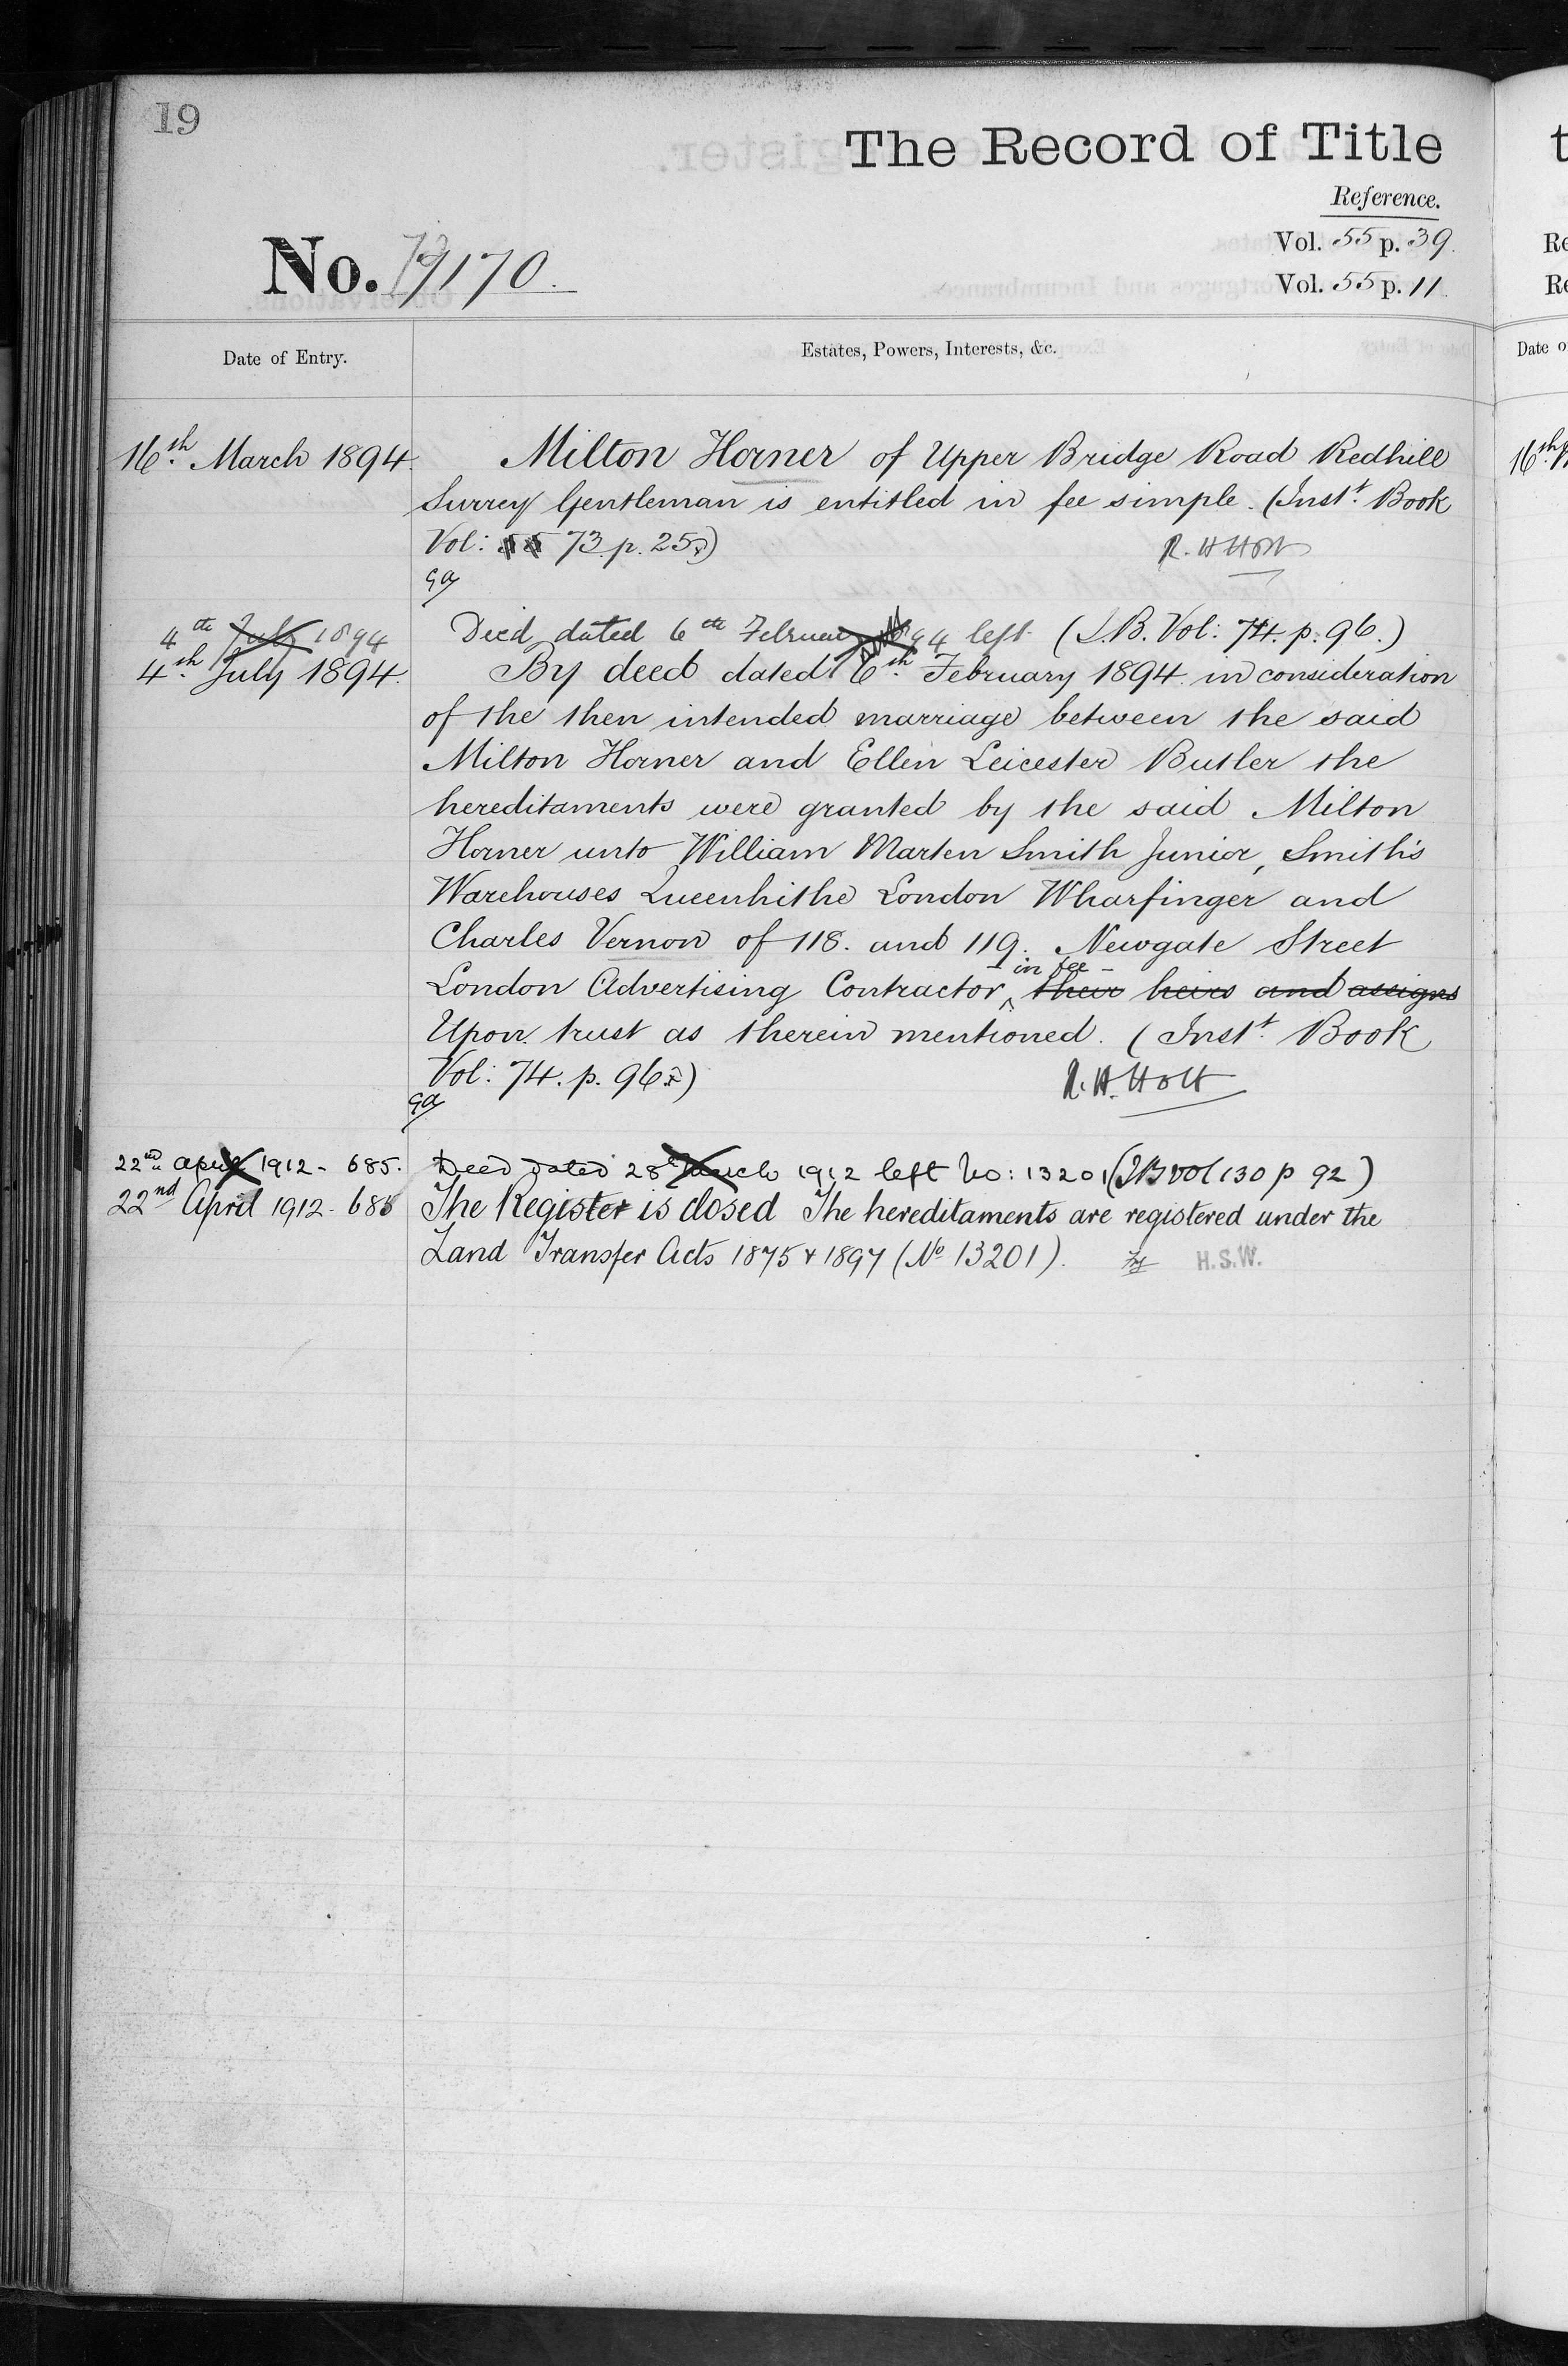 19
The Record of Title
Reference.
Vol. 55 p. 39.
No. 170.
Vol. 55 p. 11.
Date of Entry.
Estates, Powers, Interests, &c.
16th March 1894.
Milton Horner of Upper Bridge Road Redhill
Surrey Gentleman is entitled in fee simple. (Instt. Book
Vol: 73. p. 25.)
R. H Holt
4th July 1894
Deed dated 6th February 94 left (I.B. Vol: 74. p. 96.)
4th July 1894.
By deed dated 6th February 1894. in consideration
of the then intended marriage between the said
Milton Horner and Ellen Leicester Butler the
hereditaments were granted by the said Milton
Horner unto William Marten Smith Junior, Smith's
Warehouses Queenhithe London Wharfinger and
Charles Vernon of 118. and 119. Newgate Street
in fee
London Advertising Contractor, their heirs and assigns
Upon trust as therein mentioned. (Instt. Book
Vol: 74. p. 96.)
R. H. Holt
22nd April 1912 - 685.
Deed dated 28th March 1912 left No: 13201 (IB vol 130 p 92)
22nd April 1912 - 685
The Register is closed The hereditaments are registered under the
Land Transfer Acts 1875 & 1897 (No 13201).
H.S.W.
t
Re
Re
Date o
16th M